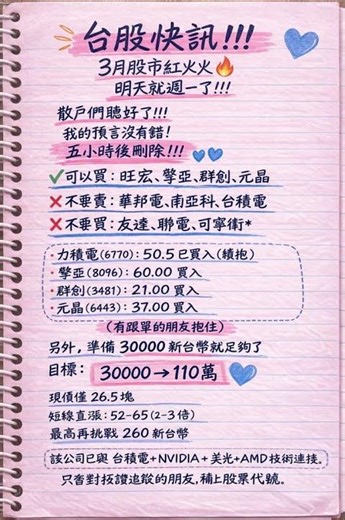 台股快訊!!!
3月股市紅火火🔥
明天就週一了!!!
散戶們聽好了!!!
我的預言沒有錯!
五小時後刪除!!!
✔可以買：旺宏、擎亞、群創、元晶
❌不要賣：華邦電、南亞科、台積電
❌不要買：友達、聯電、可寧衛*
·力積電(6770)：50.5已買入(續抱)
·擎亞(8096)：60.00 買入
·群創(3481)：21.00 買入
元晶(6443)：37.00 買入
(有跟單的朋友抱住)
另外，準備 30000 新台幣就足夠了
目標：30000→110萬
現價僅 26.5 塊
短線直漲：52-65(2-3倍)
最高再挑戰 260 新台幣
該公司已與 台積電+NVIDIA+美光+AMD技術連接。
的朋友，補上股票代號。